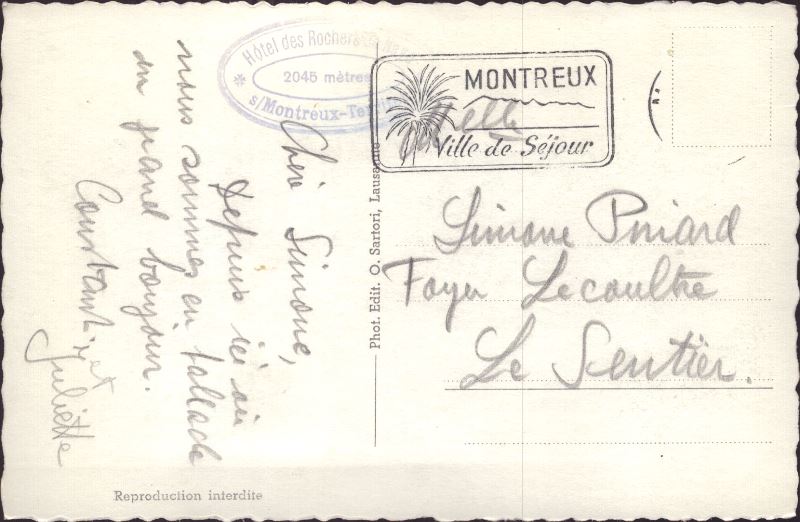 Hôtel des Rochers de Naye
2045 mètres
s/Montreux-Territet
MONTREUX
Ville de Séjour
Chère Simone,
Depuis ici où
nous sommes en ballade
un grand bonjour.
et
Juliette
Phot. Edit. O. Sartori, Lausanne
Melle
Simone Piniard
Foyer Lecoultre
Le Sentier.
Reproduction interdite